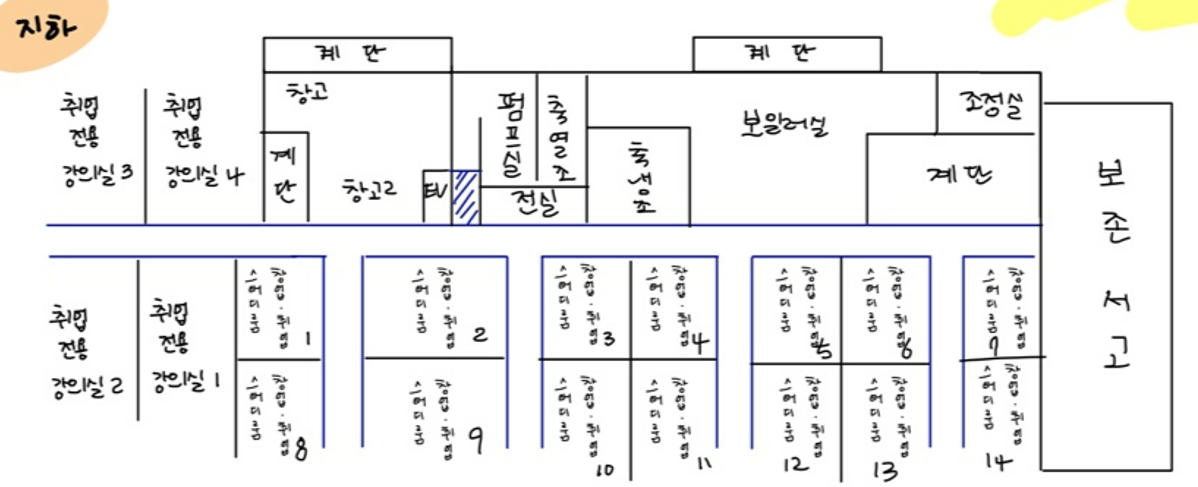 지하
계단
계단
취업
전용
강의실 3
취업
전용
강의실 4
창고
계단
창고2
EV
펌프실
축열조
전실
축냉조
보일러실
조정실
계단
보존서고
취업
전용
강의실 2
취업
전용
강의실 1
창업·취업
스터디룸
1
창업·취업
스터디룸
2
창업·취업
스터디룸
3
창업·취업
스터디룸
4
창업·취업
스터디룸
5
창업·취업
스터디룸
6
창업·취업
스터디룸
7
창업·취업
스터디룸
8
창업·취업
스터디룸
9
창업·취업
스터디룸
10
창업·취업
스터디룸
11
창업·취업
스터디룸
12
창업·취업
스터디룸
13
창업·취업
스터디룸
14